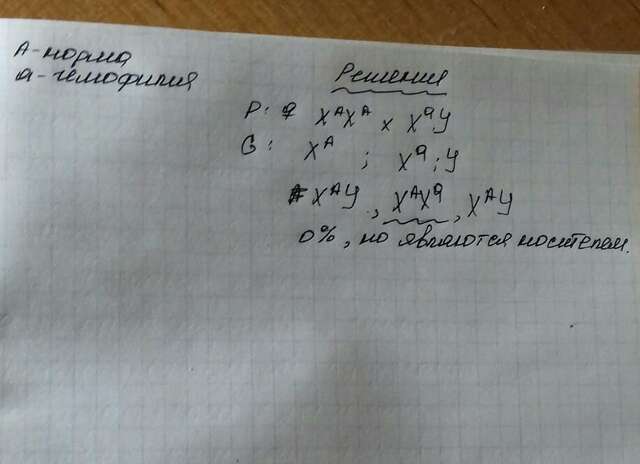 A - норма
a - гемофилия
Решение
P: ♀ XᴬXᴬ x XᵃY
G: Xᴬ ; Xᵃ ; Y
F XᴬY , XᴬXᵃ , XᴬY
0%, но являются носителем.